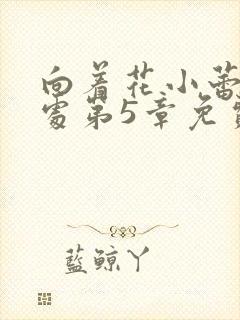 向着花小蕾
处第5章免费
藍鲸丫